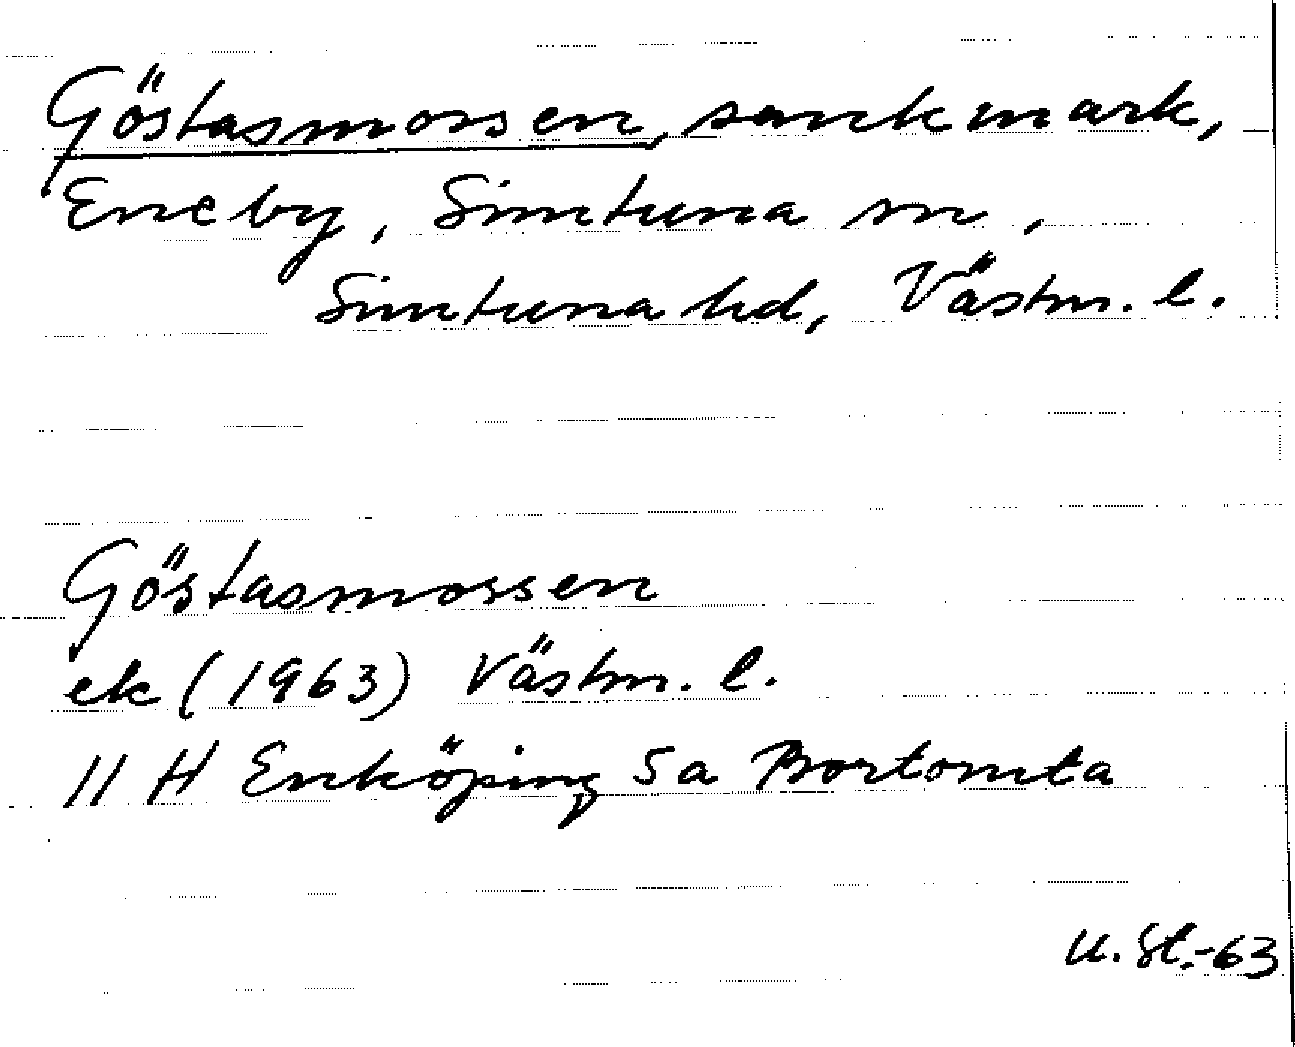 Göstasmossen, sankmark,
Eneby, Simtuna sn,
Simtuna hd, Västm. l.
Göstasmossen
ek (1963) Västm. l.
11 H Enköping 5a Bortomta
U. St.-63